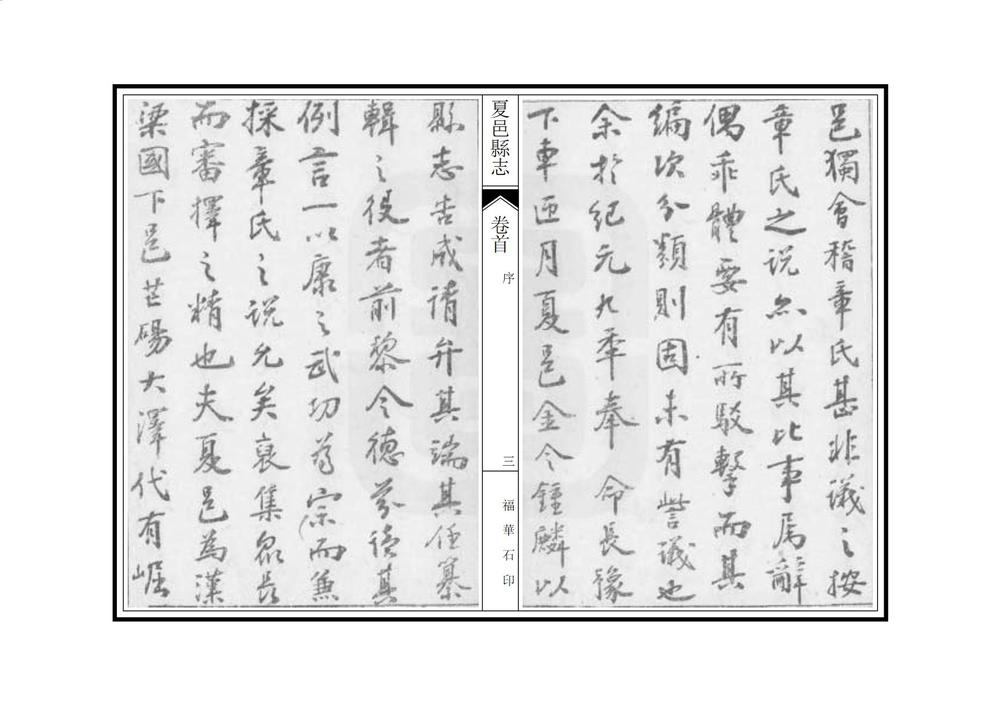 邑獨會稽章氏甚非議之按
章氏之说亦以其比事属辭
偶乖體要有所駁擊而其
编次分類則固未有訾议也
余於纪元九年奉命長豫
下車匝月夏邑金令鍾麟以
夏邑縣志
卷首
序
三
福華石印
縣志告成請弁其端其任纂
輯之役者前黎令德芬读其
例言一以康之武功为宗而兼
採章氏之说允矣裒集众长
而審擇之精也夫夏邑為漢
梁國下邑芒碭大澤代有崛